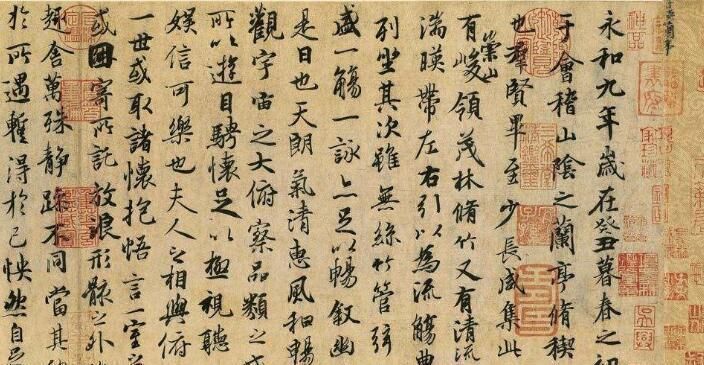 永和九年歲在癸丑暮春之初
于會稽山陰之蘭亭脩稧
也羣賢畢至少長咸集此
有崇山峻領茂林脩竹又有清流
湍暎帶左右引以為流觴曲
列坐其次雖無絲竹管弦
盛一觴一詠亦足以暢敘幽
是日也天朗氣清惠風和暢
觀宇宙之大俯察品類之盛
所以遊目騁懷足以極視聽
娛信可樂也夫人之相與俯
一世或取諸懷抱悟言一室之
或因寄所託放浪形骸之外
趣舍萬殊靜躁不同當其
於所遇蹔得於己怏然自足